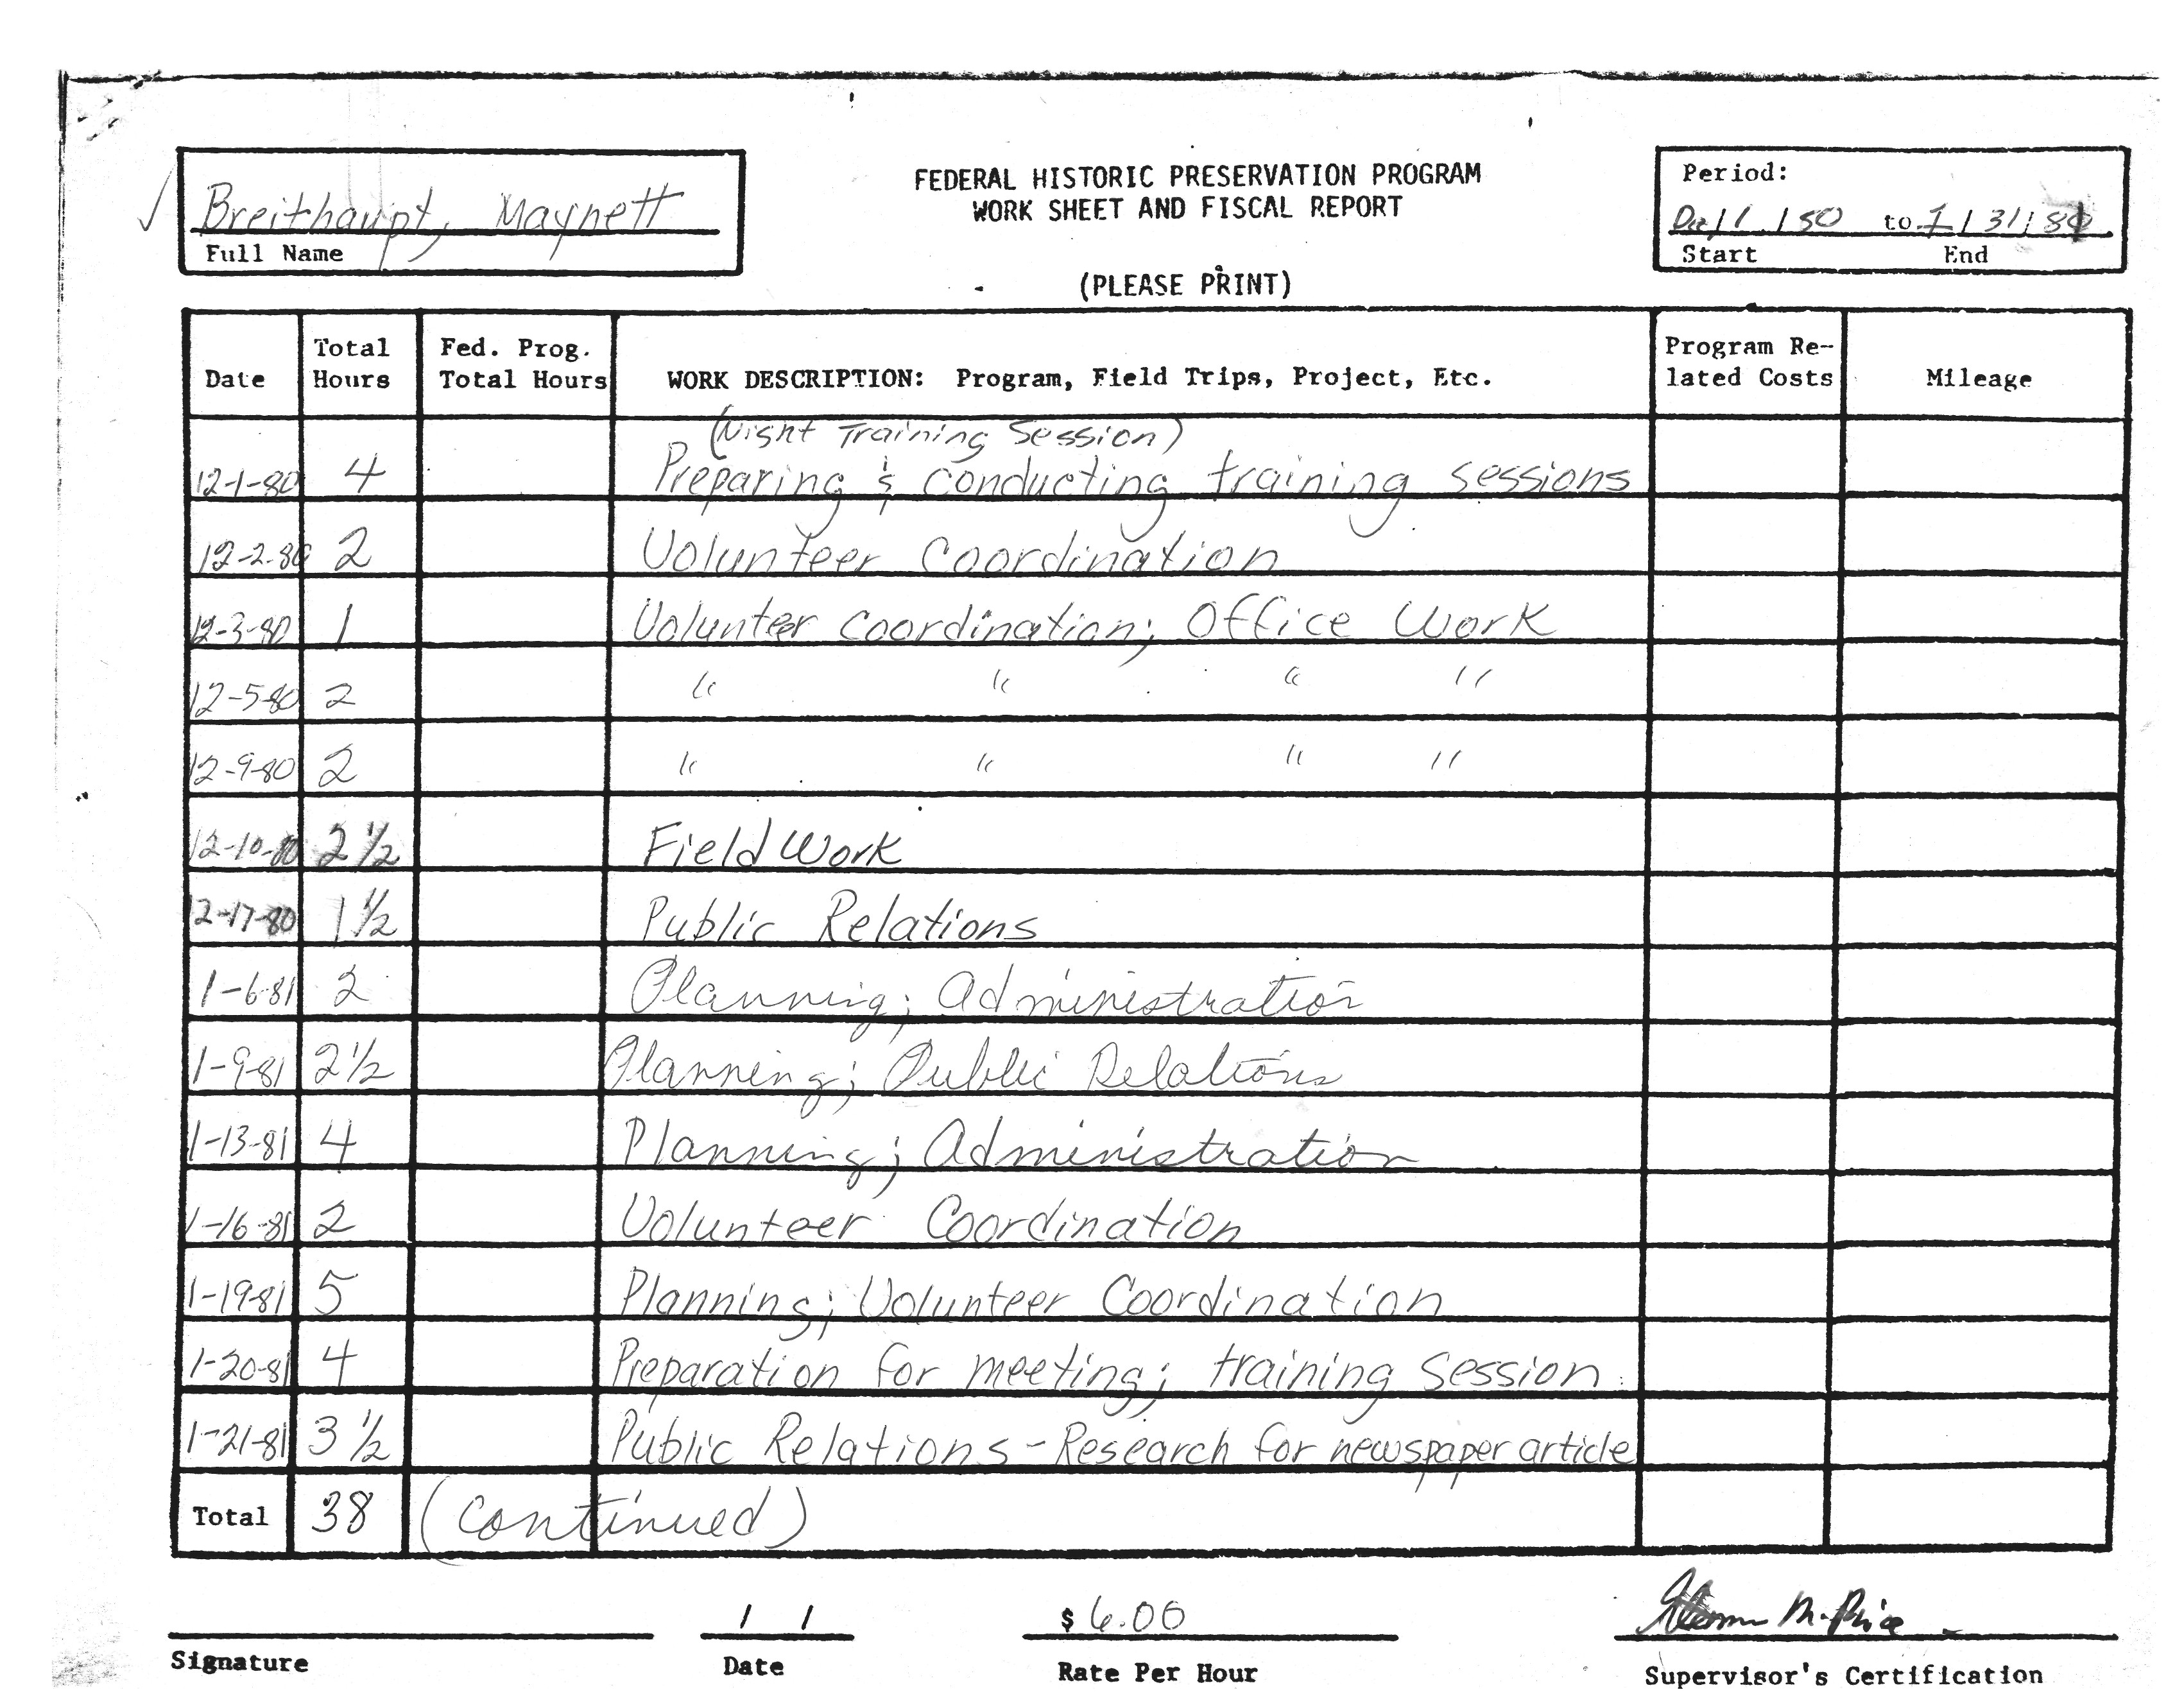 Breithaupt, Maynett
Full Name
FEDERAL HISTORIC PRESERVATION PROGRAM
WORK SHEET AND FISCAL REPORT
(PLEASE PRINT)
Period:
Dec/1/80 to 1/31/81
Start End
Date Total Hours Fed. Prog. Total Hours WORK DESCRIPTION: Program, Field Trips, Project, Etc. Program Re-lated Costs Mileage
(Night Training Session)
12-1-80 4 Preparing & conducting training sessions
12-2-80 2 Volunteer Coordination
12-3-80 1 Volunteer Coordination; Office Work
12-5-80 2 " " " "
12-9-80 2 " " " "
12-10-80 2 1/2 Field Work
12-17-80 1 1/2 Public Relations
1-6-81 2 Planning; Administration
1-9-81 2 1/2 Planning; Public Relations
1-13-81 4 Planning; Administration
1-16-81 2 Volunteer Coordination
1-19-81 5 Planning; Volunteer Coordination
1-20-81 4 Preparation for meeting; training session
1-21-81 3 1/2 Public Relations - Research for newspaper article
Total 38 (continued)
/ / $ 6.00 M. Price
Signature Date Rate Per Hour Supervisor's Certification